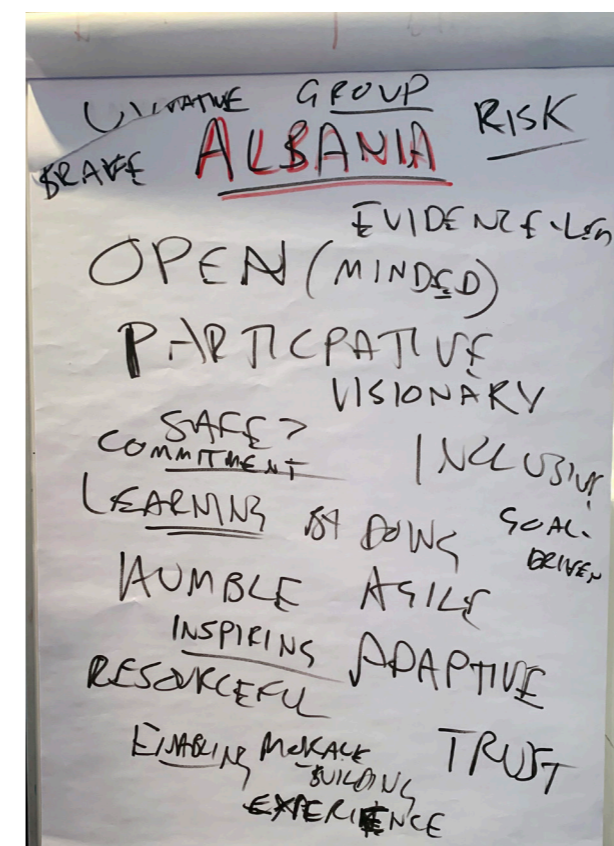 GROUP
RISK
BRAVE
ALBANIA
EVIDENCE-LED
OPEN (MINDED)
PARTICPATIVE
VISIONARY
SAFE?
COMMITMENT
INCLUSIVE
LEARNING BY DOING
GOAL-
DRIVEN
HUMBLE AGILE
INSPIRING ADAPTIVE
RESOURCEFUL
ENABLING MORALE
BUILDING
TRUST
EXPERIENCE